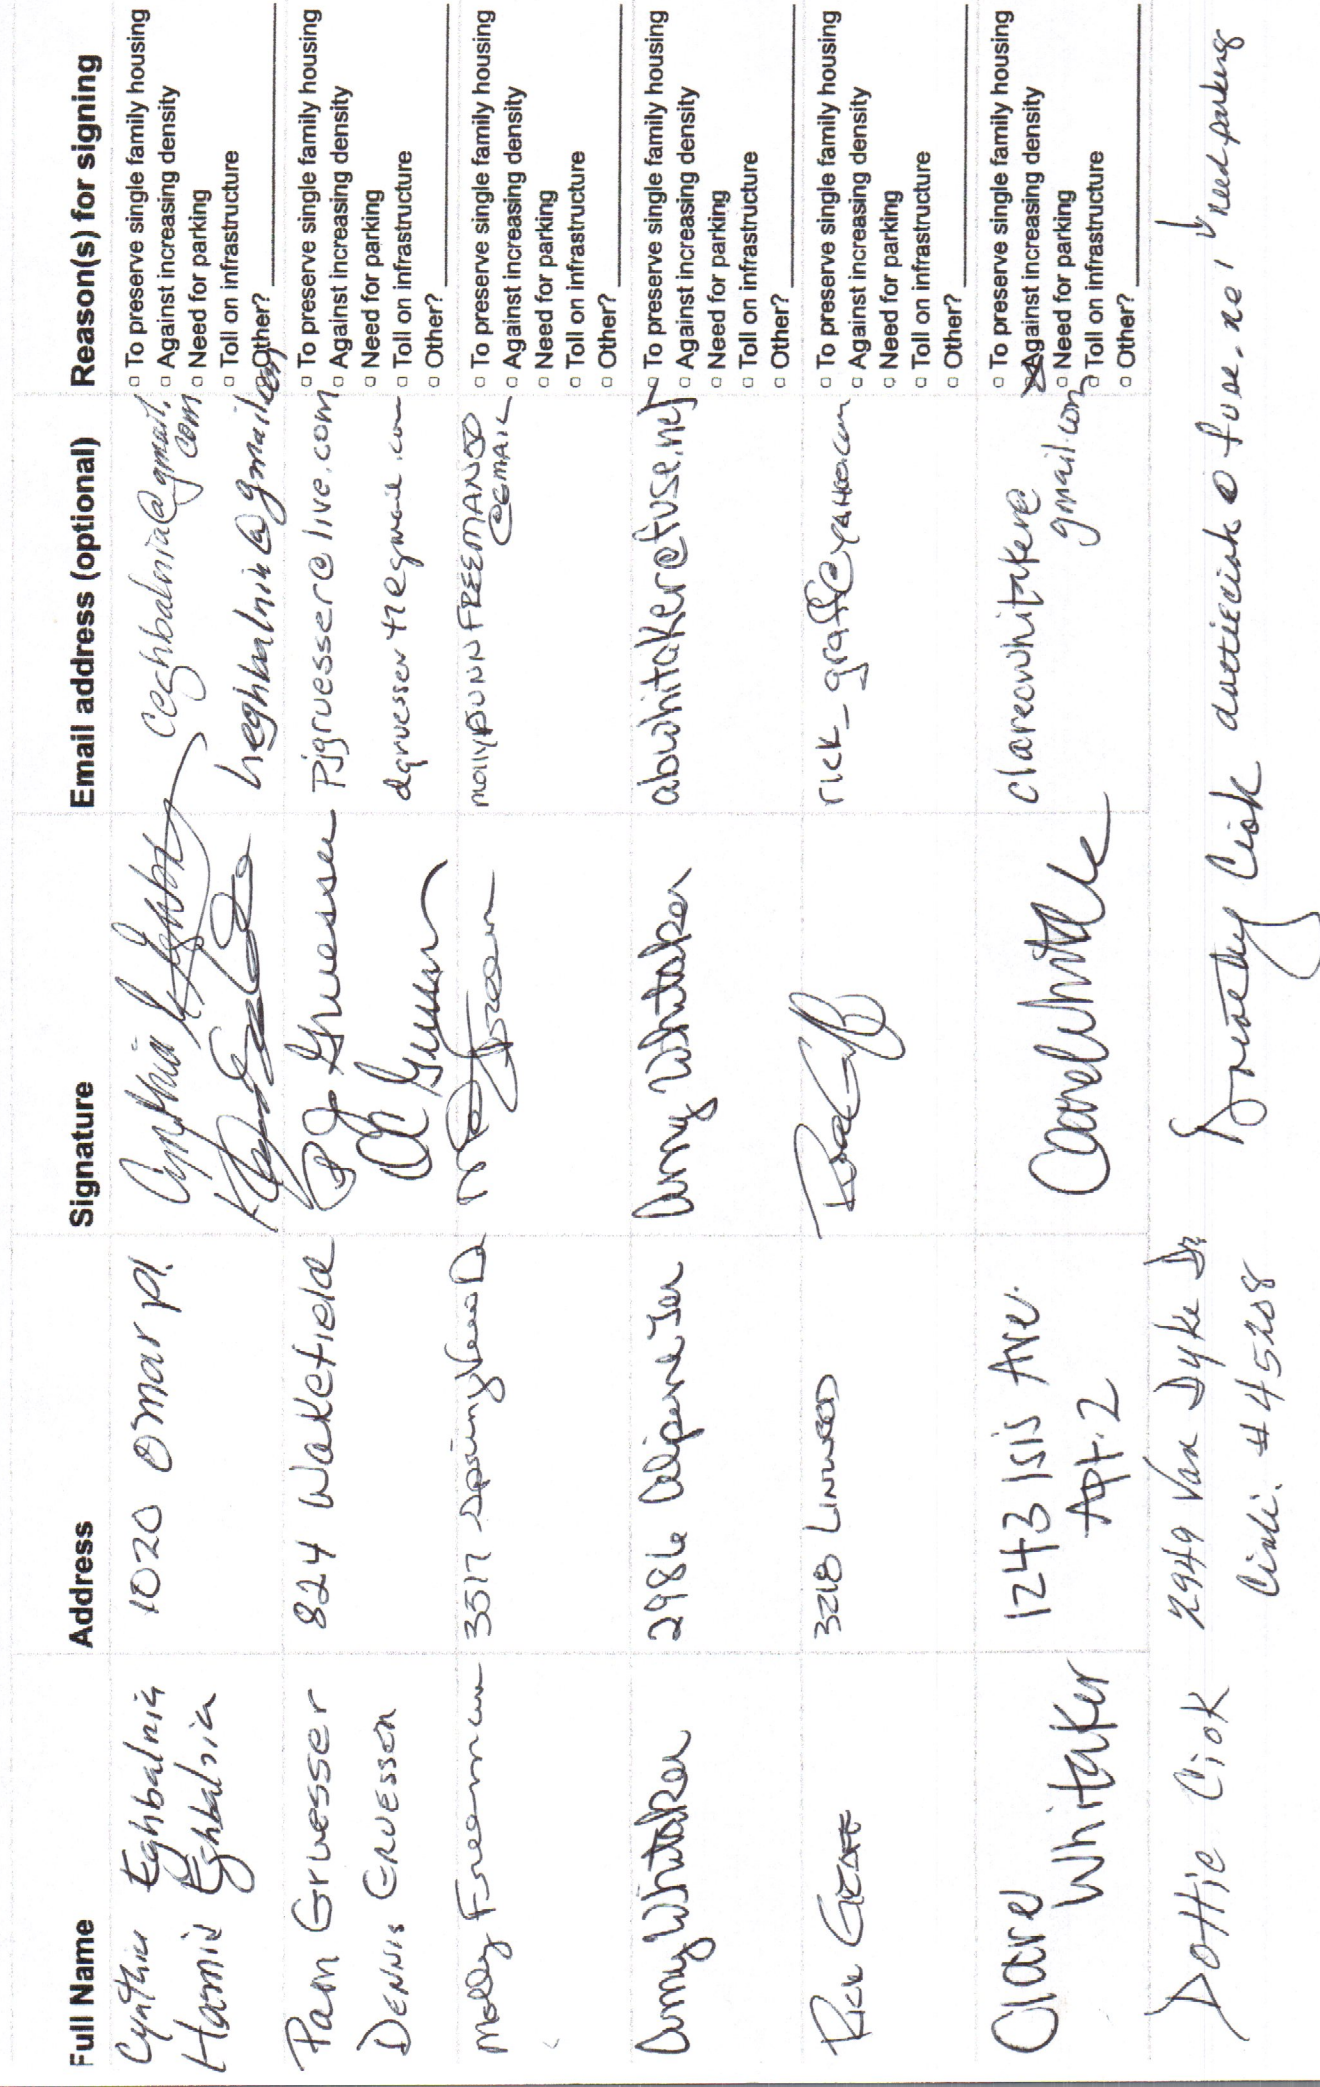 Full Name Address Signature Email address (optional) Reason(s) for signing
Cynthia Eghbalnia 1020 Omar Pl. Cynthia ceghbalnia@gmail.
com
Hamid Eghbalnia heghbalnia@gmail.com
○ To preserve single family housing
○ Against increasing density
○ Need for parking
○ Toll on infrastructure
Other?
Pam Gruesser 824 Wakefield PJ Gruesser pjgruesser@live.com
DENNIS GRUESSER
○ To preserve single family housing
○ Against increasing density
○ Need for parking
○ Toll on infrastructure
○ Other?
Molly Freeman 3517 mollyDUNNFREEMAN@
@GMAIL
○ To preserve single family housing
○ Against increasing density
○ Need for parking
○ Toll on infrastructure
○ Other?
Amy Whitaker 2986 Alpine Ter Amy Whitaker abwhitaker@fuse.net
○ To preserve single family housing
○ Against increasing density
○ Need for parking
○ Toll on infrastructure
○ Other?
RICK GRAFF 3218 LINWOOD rick_graff@yahoo.com
○ To preserve single family housing
○ Against increasing density
○ Need for parking
○ Toll on infrastructure
○ Other?
Clare 1243 Isis Ave. Clare Whitaker clarecwhitaker@
Whitaker Apt. 2 gmail.com
○ To preserve single family housing
Against increasing density
○ Need for parking
Toll on infrastructure
○ Other?
Dottie Ciok 2949 Van Dyke Dr. Dorothy Ciok dottieciok@fuse.net need parking
Cinti. # 45208